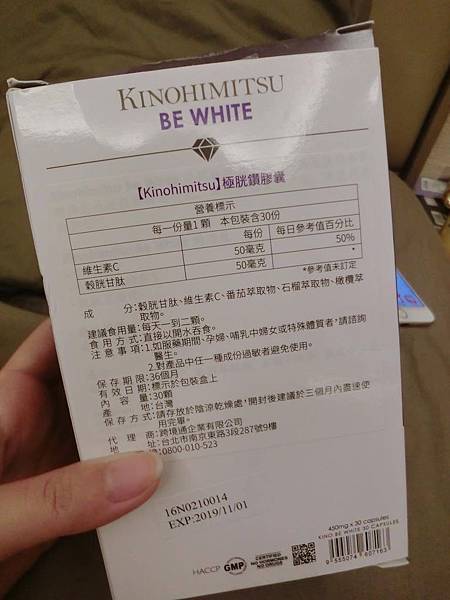 KINOHIMITSU
BE WHITE
【Kinohimitsu】極胱鑽膠囊
營養標示
每一份量1顆 本包裝含30份
每份 每日參考值百分比
維生素C 50毫克 50%
穀胱甘肽 50毫克 *
*參考值未訂定
成 分:穀胱甘肽、維生素C、番茄萃取物、石榴萃取物、橄欖萃
取物。
建議食用量:每天一到二顆。
食用方式:直接以開水吞食。
注意事項:1.如服藥期間、孕婦、哺乳中婦女或特殊體質者,請諮詢
醫生。
2.對產品中任一種成份過敏者避免使用。
保存期限:36個月
有效日期:標示於包裝盒上
內容量:30顆
產地:台灣
保存方式:請存放於陰涼乾燥處,開封後建議於三個月內盡速使
用完畢。
代理商:跨境通企業有限公司
地 :台北市南京東路3段287號9樓
電 :0800-010-523
16N0210014
EXP:2019/11/01
450mg x 30 capsules
KINO BE WHITE 30 CAPSULES
HACCP GMP CERTIFIED
NO HORMONES
NO DRUGS
9 555074 607163